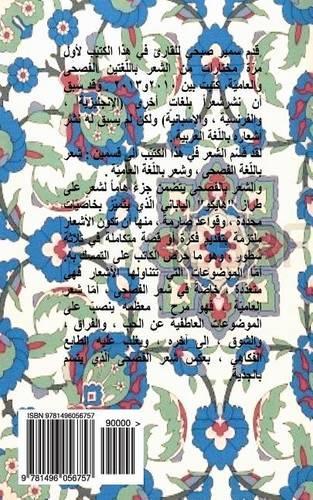 قدم سمير صبحي للقارئ في هذا الكتيب لأول
مرة مختارات من الشعر باللغتين الفصحى
والعامية، كتبت بين ٢٠١١ و٢٠١٣. وقد سبق
أن نشر شعراً بلغات أخرى (الإنجليزية ،
والفرنسية ، والأسبانية) ولكن لم يسبق له نشر
أشعاره باللغة العربية.
لقد قسّم الشعر في هذا الكتيب الى قسمين : شعر
باللغة الفصحى ، وشعر باللغة العامية.
والشعر بالفصحى يتضمن جزءً هاماً لشعر على
طراز "هايكو" الياباني الذي يتميز بخاصيات
محددة ، وقواعد صارمة ، منها أن تكون الأشعار
ملتزمة بتقديم فكرة أو قصة متكاملة في ثلاثة
سطور. وهو ما حرص الكاتب على التمسك به.
أما الموضوعات التي تتناولها الأشعار فهي
متعددة ، خاصة في شعر الفصحى ، أما شعر
العامية ، فهو مرح ، معظمه ينصب على
الموضوعات العاطفية عن الحب ، والفراق ،
والشوق ، الى أخره ، ويغلب عليه الطابع
الفكاهي ، بعكس شعر الفصحى الذي يتسم
بالجدية.
ISBN 9781496056757
90000 >
9 781496 056757